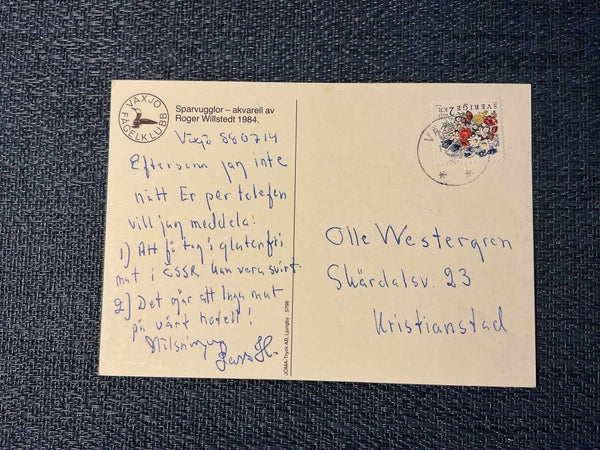 VÄXJÖ
FÅGELKLUBB
Sparvugglor – akvarell av
Roger Willstedt 1984.
Växjö 880714
Eftersom jag inte
nått Er per telefon
vill jag meddela:
1) Att få tag i glutenfri
mat i ČSSR kan vara svårt.
2) Det går att laga mat
på vårt hotell!
Hälsningar
JOMA-Tryck AB, Ljungby 5798
SVERIGE 2 KR
VÄ
Olle Westergren
Skärdalsv. 23
Kristianstad